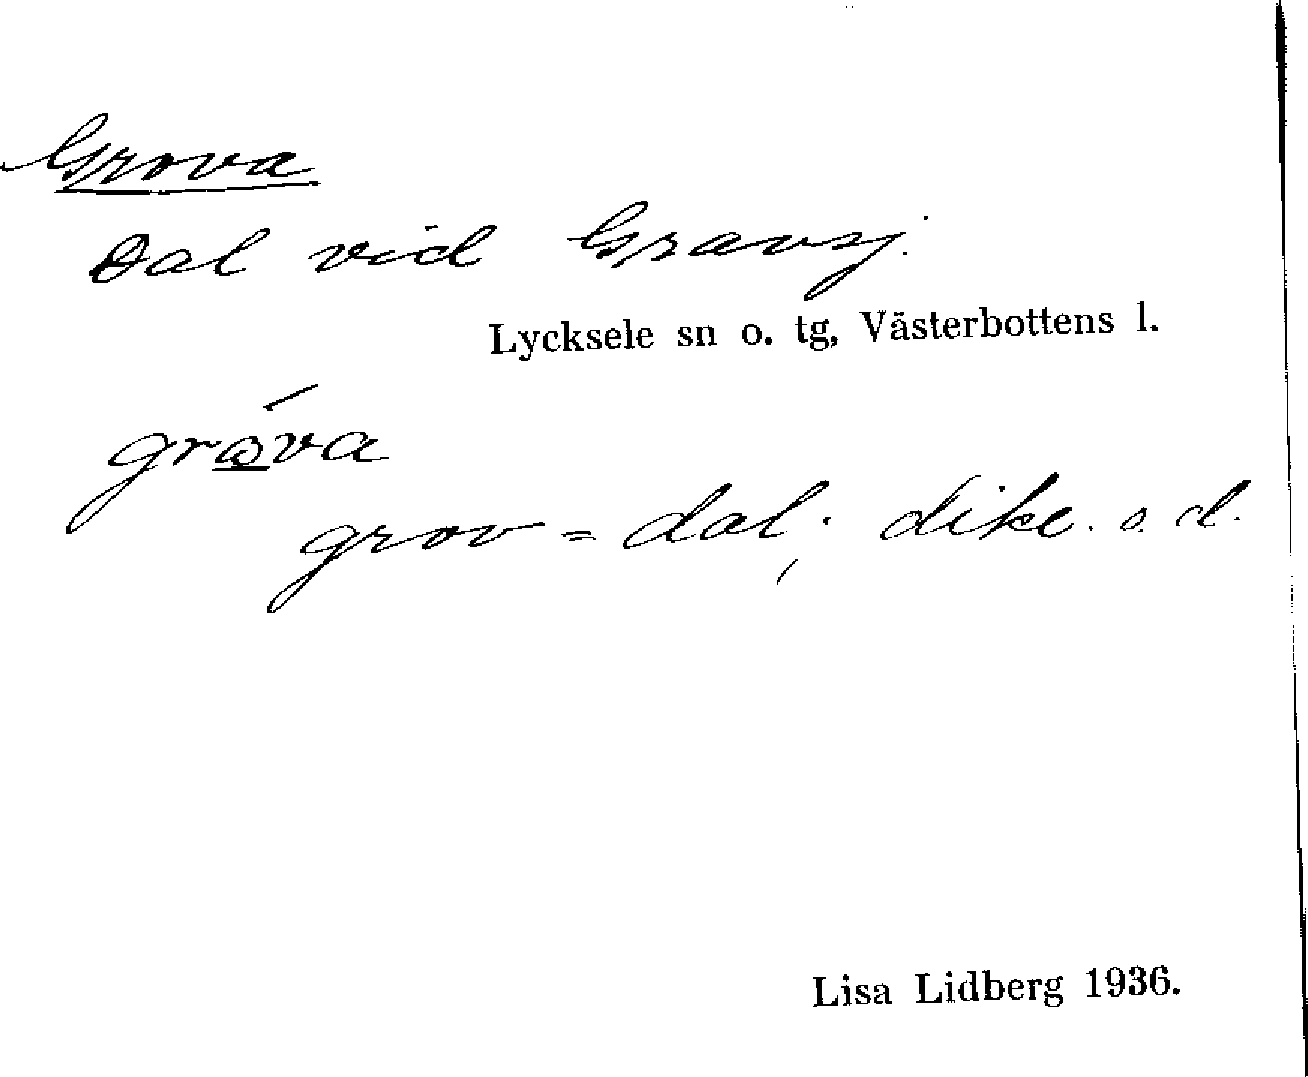 Grova
Dal vid Gravsj.
Lycksele sn o. tg, Västerbottens l.
grova
grov = dal; dike. o. d.
Lisa Lidberg 1936.